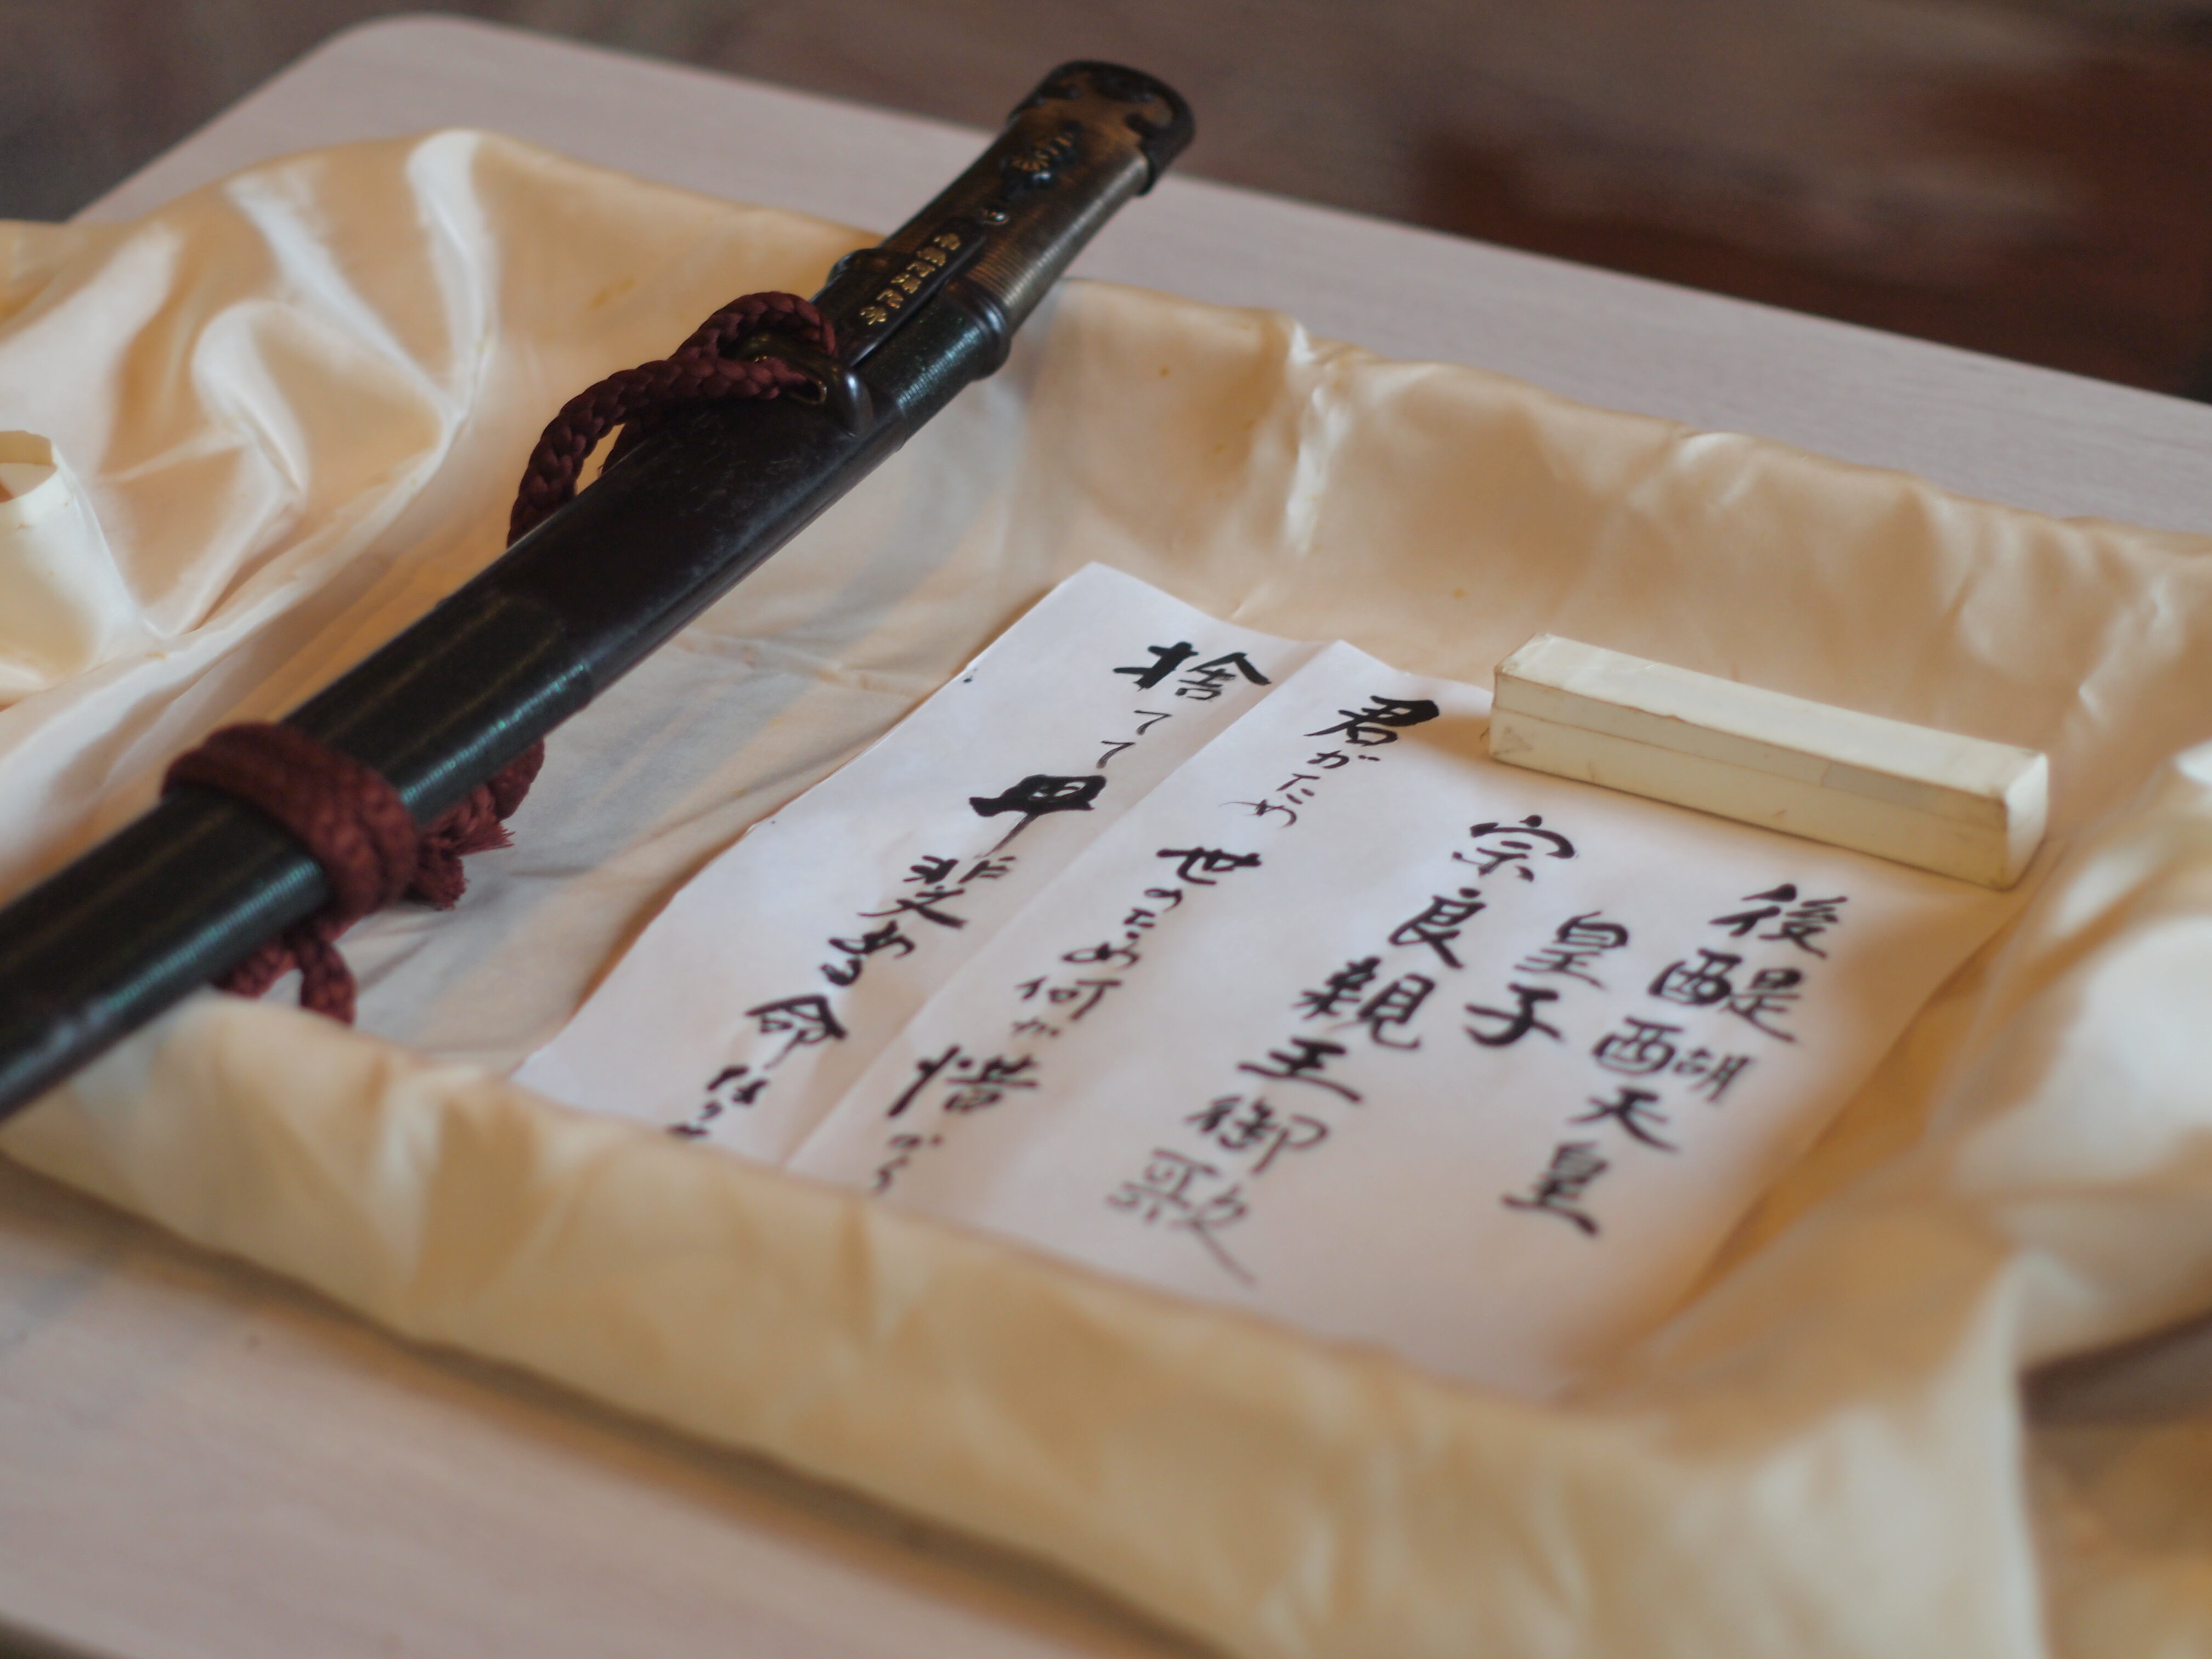 後醍醐天皇
皇子
宗良親王御歌
君がため世のため何か惜からん
捨てて甲斐ある命なりせば